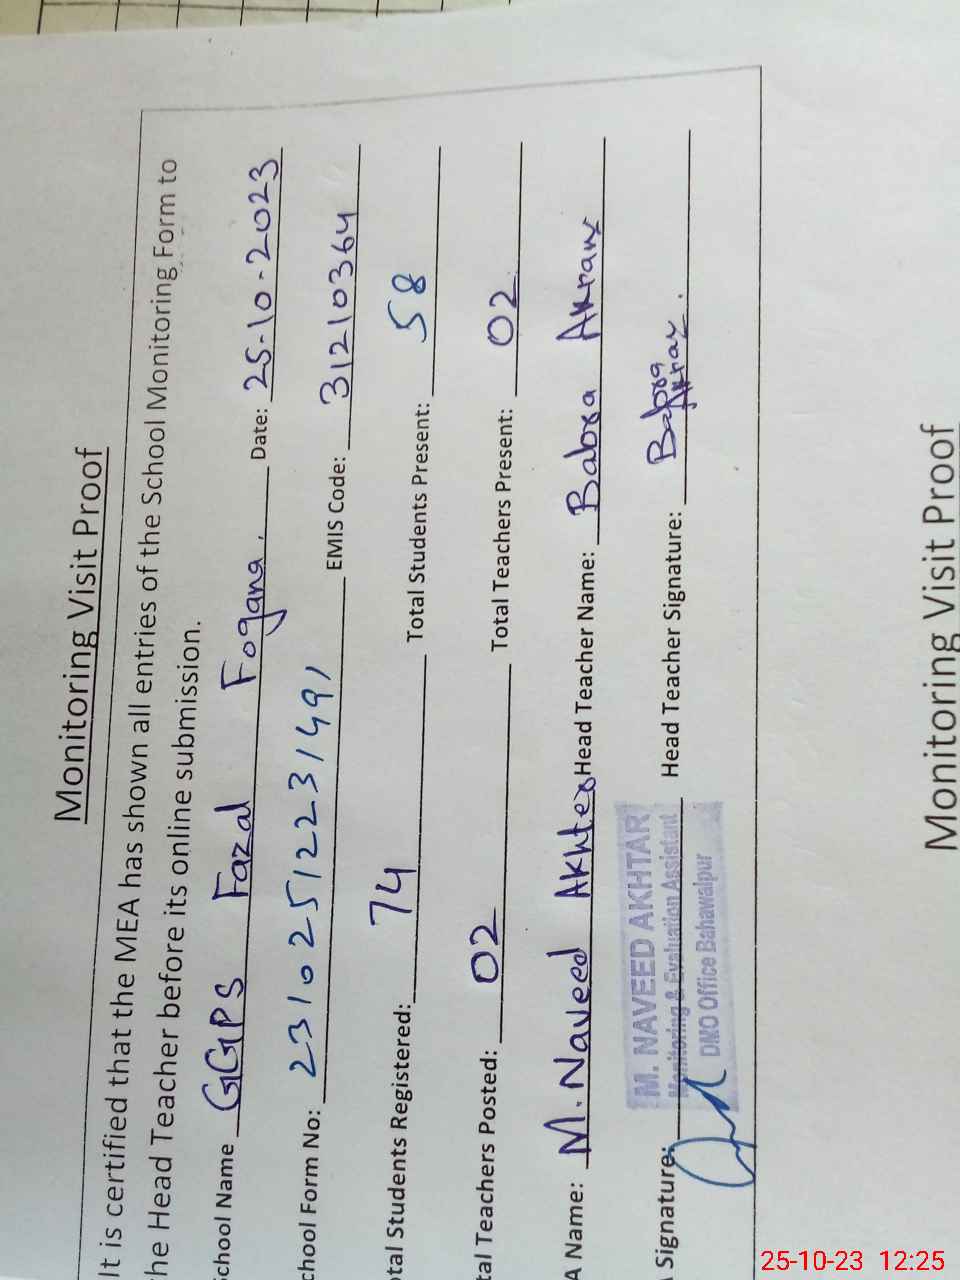 Monitoring Visit Proof
It is certified that the MEA has shown all entries of the School Monitoring Form to
he Head Teacher before its online submission.
School Name GGPS Fazal Fogana. Date: 25-10-2023
chool Form No: 231025122231491 EMIS Code: 31210364
otal Students Registered: 74 Total Students Present: 58
tal Teachers Posted: 02 Total Teachers Present: 02
A Name: M. Naveed Akhter Head Teacher Name: Babra Akram
Signature: Head Teacher Signature: Babra Akram.
M. NAVEED AKHTAR
Monitoring & Evaluation Assistant
DMO Office Bahawalpur
Monitoring Visit Proof
25-10-23 12:25